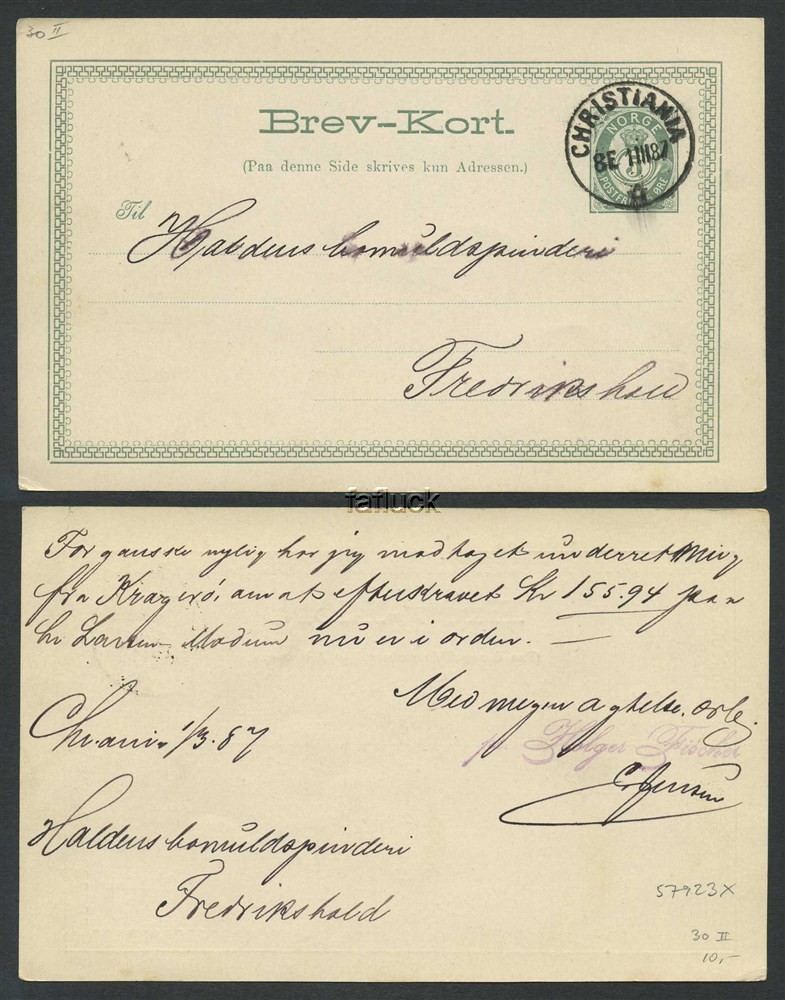 30 II
Brev-Kort.
(Paa denne Side skrives kun Adressen.)
CHRISTIANIA
8E 1 III 87
A
NORGE
5
POSTFRIM ØRE
Til
Haldens bomuldspinderi
Fredrikshald
fafluck
For ganske nylig har jeg modtaget underretning
fra Kragerö, om at efterkravet Kr 155.94 paa
hr Larsen Modum nu er i orden. —
Med megen agtelse, ærb.
Chr.ania 1/3.87
pr. Holger Fischer
C. Jensen
Haldens bomuldspinderi
Fredrikshald
57923X
30 II
10,-